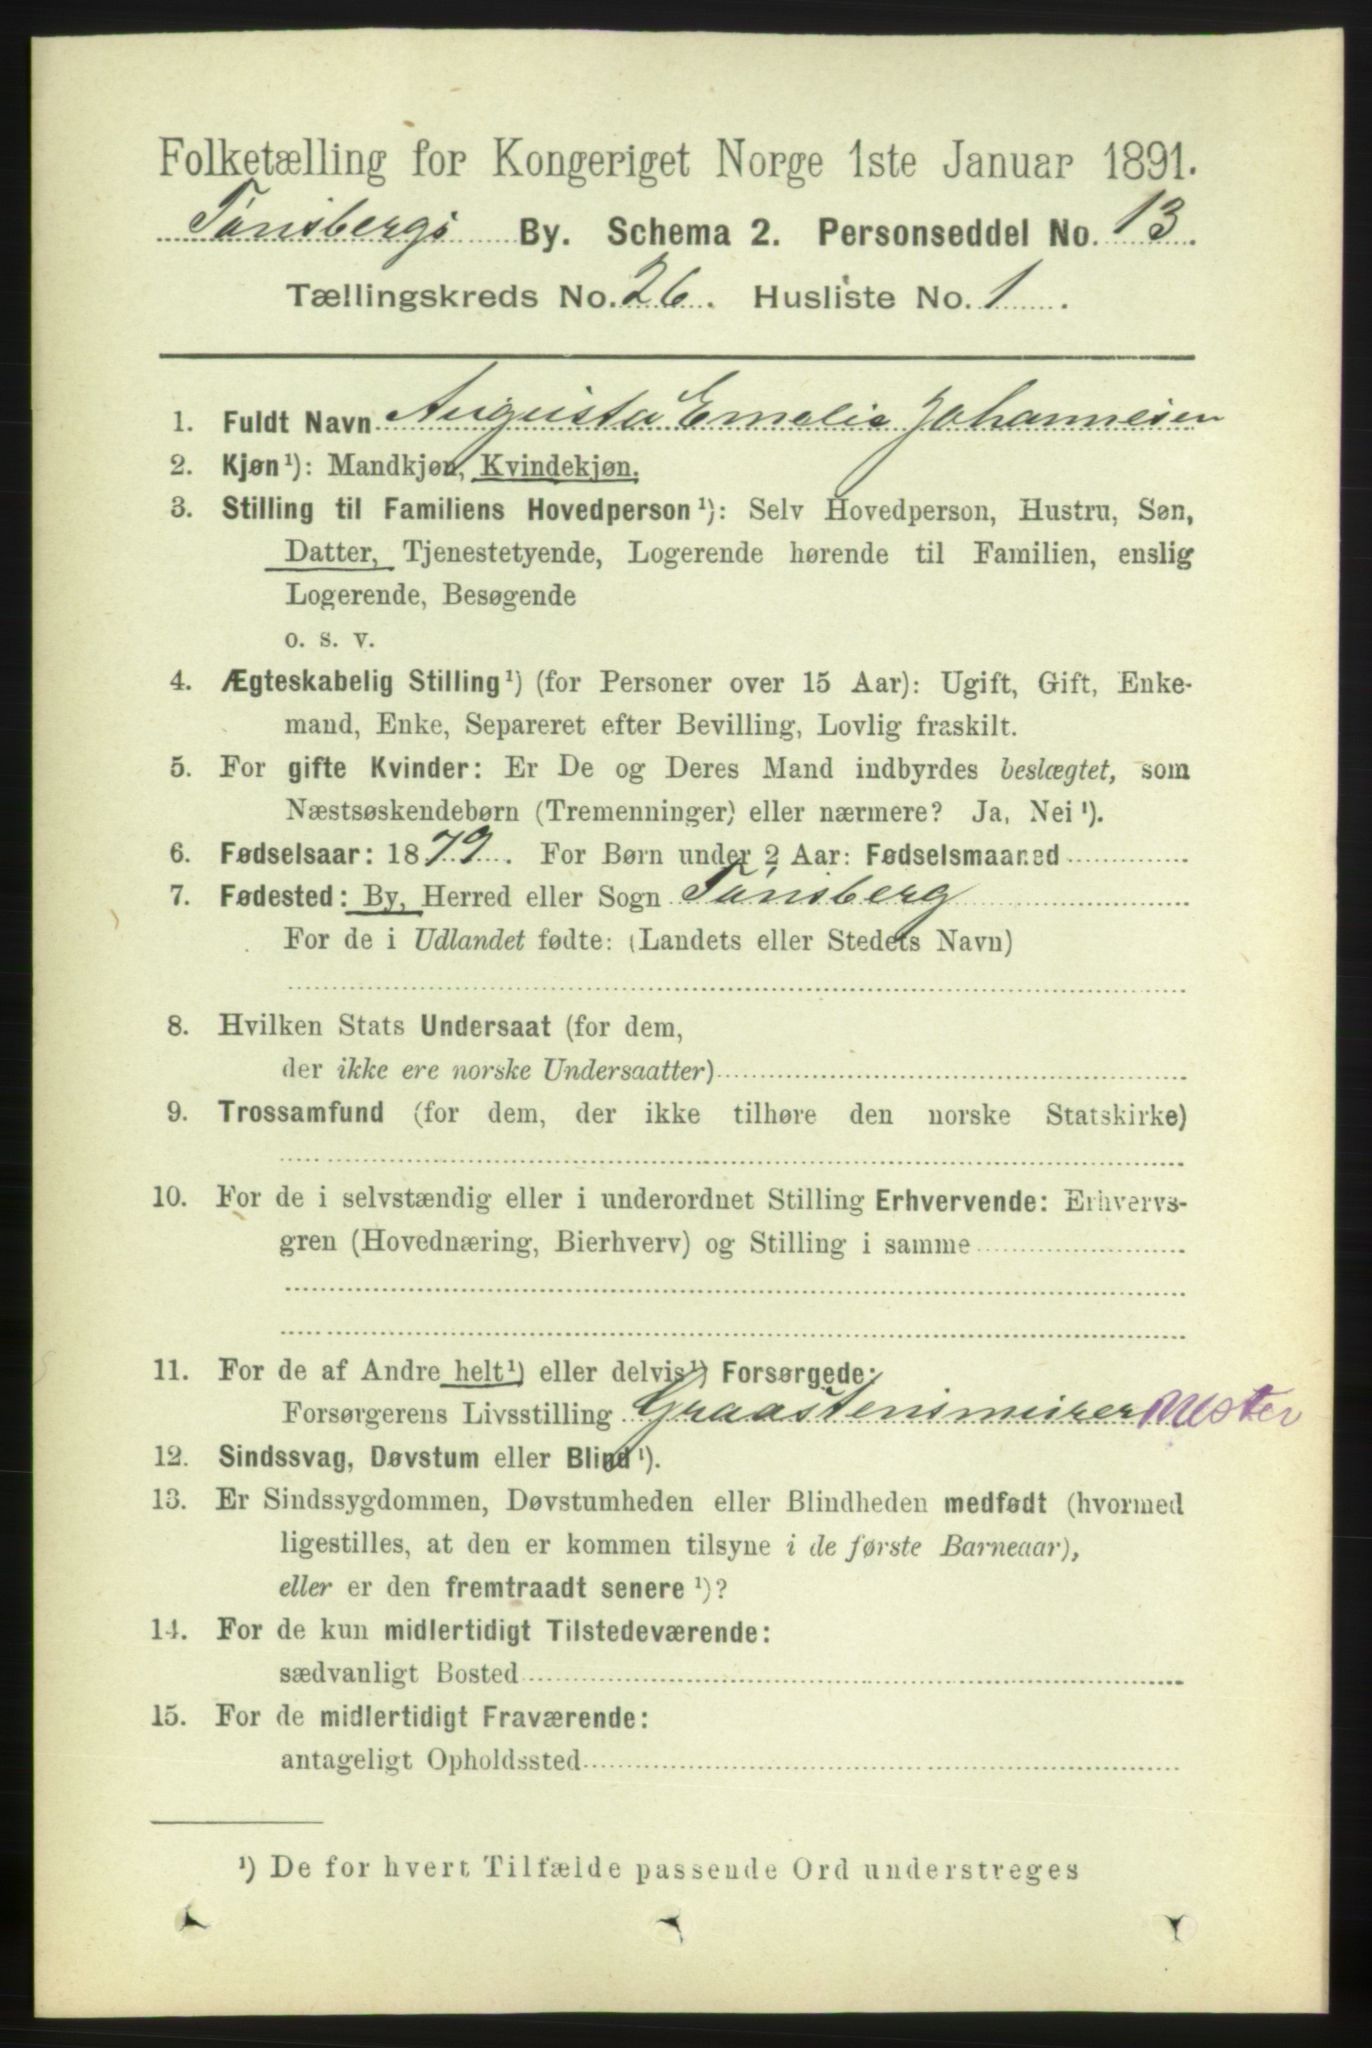 Folketælling for Kongeriget Norge 1ste Januar 1891.
Tønsbergs By. Schema 2. Personseddel No. 13.
Tællingskreds No. 26. Husliste No. 1.
1. Fuldt Navn Augusta Emelie Johannesen
2. Kjøn¹): Mandkjøn, Kvindekjøn.
3. Stilling til Familiens Hovedperson¹): Selv Hovedperson, Hustru, Søn,
Datter, Tjenestetyende, Logerende hørende til Familien, enslig
Logerende, Besøgende
o. s. v.
4. Ægteskabelig Stilling¹) (for Personer over 15 Aar): Ugift, Gift, Enke-
mand, Enke, Separeret efter Bevilling, Lovlig fraskilt.
5. For gifte Kvinder: Er De og Deres Mand indbyrdes beslægtet, som
Næstsøskendebørn (Tremenninger) eller nærmere? Ja, Nei¹).
6. Fødselsaar: 1879. For Børn under 2 Aar: Fødselsmaaned
7. Fødested: By, Herred eller Sogn Tønsberg
For de i Udlandet fødte: (Landets eller Stedets Navn)
8. Hvilken Stats Undersaat (for dem,
der ikke ere norske Undersaatter)
9. Trossamfund (for dem, der ikke tilhøre den norske Statskirke)
10. For de i selvstændig eller i underordnet Stilling Erhvervende: Erhvervs-
gren (Hovednæring, Bierhverv) og Stilling i samme
11. For de af Andre helt¹) eller delvis¹) Forsørgede:
Forsørgerens Livsstilling Graastensmurer Mster
12. Sindssvag, Døvstum eller Blind¹).
13. Er Sindssygdommen, Døvstumheden eller Blindheden medfødt (hvormed
ligestilles, at den er kommen tilsyne i de første Barneaar),
eller er den fremtraadt senere¹)?
14. For de kun midlertidigt Tilstedeværende:
sædvanligt Bosted
15. For de midlertidigt Fraværende:
antageligt Opholdssted
¹) De for hvert Tilfælde passende Ord understreges